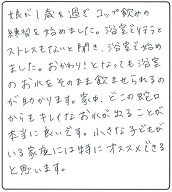 娘が1歳を過ぎ コップ飲みの
練習を始めました。浴室で行うと
ストレスもないと聞き、浴室で始め
ました。おかわり！となっても浴室
のお水をそのまま飲ませられるの
が助かります。家中、どこの蛇口
からもキレイなお水が出ることが
本当に良いです。小さな子どもが
いる家庭には特にオススメできる
と思います。